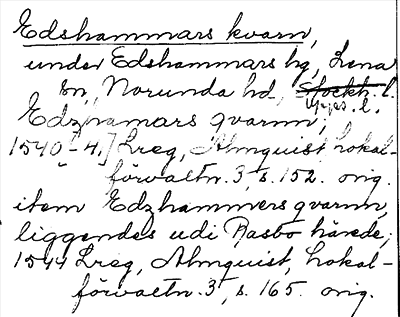 Edshammars kvarn,
under Edshammars hg, Lena
sn, Norunda hd, Stockh. l.
Upps. l.
Edzhamars qvarnn,
1540-4, Lreg, Almquist, Lokal-
förvaltn. 3, s. 152. orig.
item Edzhammers qvarnn,
liggendes udi Rasbo härede;
1544 Lreg, Almquist, Lokal-
förvaltn. 3, s. 165. orig.